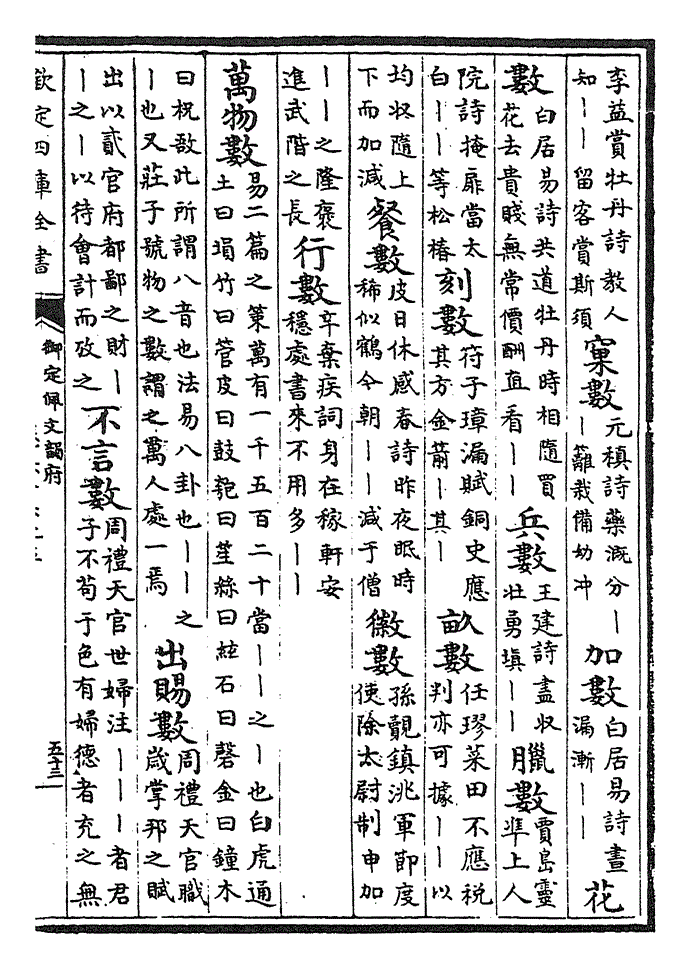 李益賞牡丹詩教人知——留客賞斯須 窠數 元稹詩藥溉分——籬栽備幼冲 加數 白居易詩晝漏漸—— 花
數 白居易詩共道牡丹時相隨買花去貴賤無常價酬直看—— 兵數 王建詩盡收壯勇塡—— 臘數 賈島靈準上人
院詩掩扉當太白——等松椿 刻數 符子璋漏賦銅史應其方金箭—其— 畝數 任璆菜田不應稅判亦可據——以
均收隨上下而加減 餐數 皮日休感春詩昨夜眠時稀似鶴今朝——減于僧 徽數 孫覿鎮洮軍節度使除太尉制申加
——之隆褒進武階之長 行數 辛棄疾詞身在稼軒安穩處書來不用多——
萬物數 易二篇之策萬有一千五百二十當——之—也白虎通土曰塤竹曰管皮曰鼓匏曰笙絲曰絃石曰磬金曰鐘木
曰柷敔此所謂八音也法易八卦也——之—也又莊子號物之數謂之萬人處一焉 出賜數 周禮天官職歲掌邦之賦
出以貳官府都鄙之財——之—以待會計而攷之 不言數 周禮天官世婦注———者君子不苟于色有婦德者充之無
欽定四庫全書
御定佩文韻府
五十三